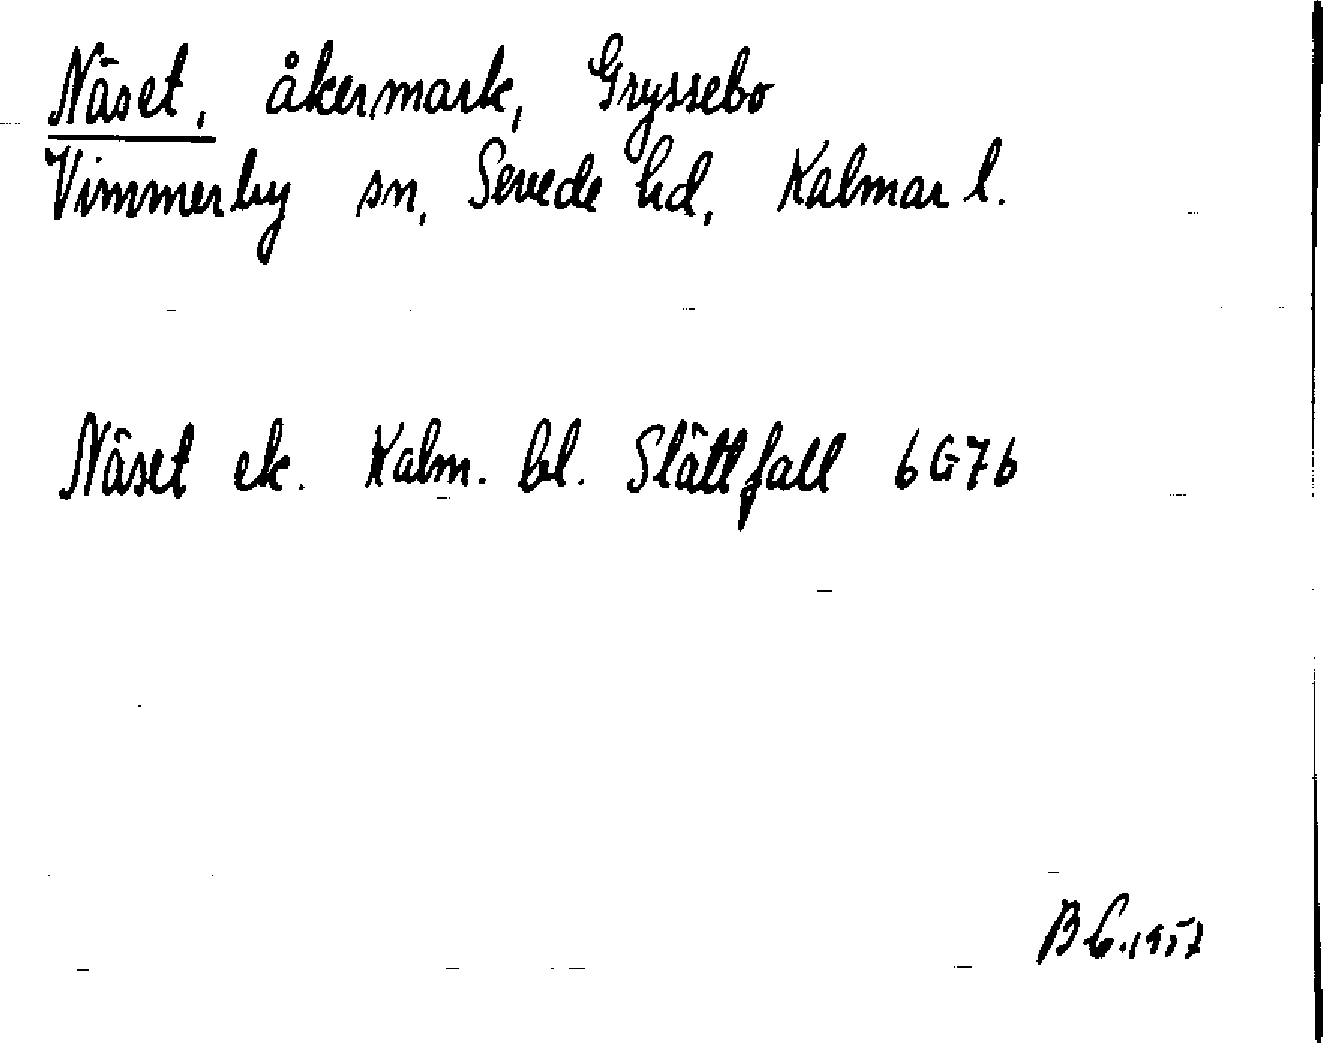 Näset, åkermark, Gryssebo
Vimmerby sn, Sevede hd, Kalmar l.
Näset ek. Kalm. bl. Slättfall 6G7b
B C. 1957